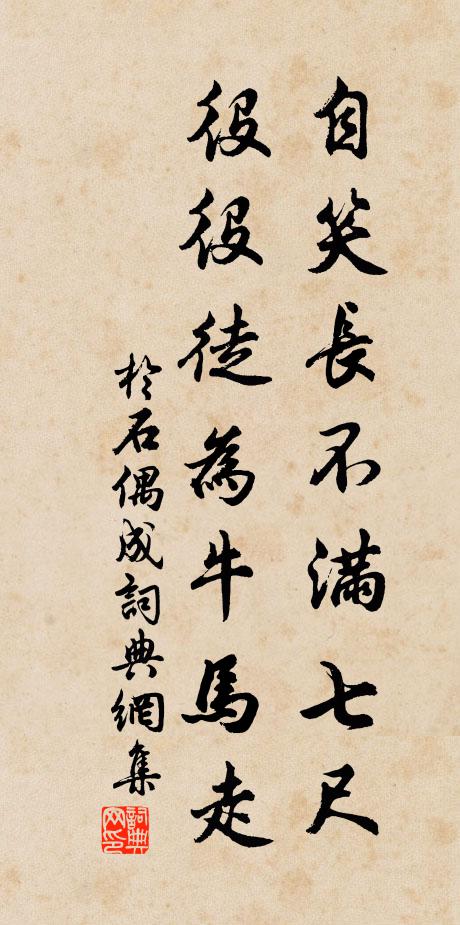 自笑長不滿七尺
役役徒為牛馬走
於石偶成詞典網集
詞典网印